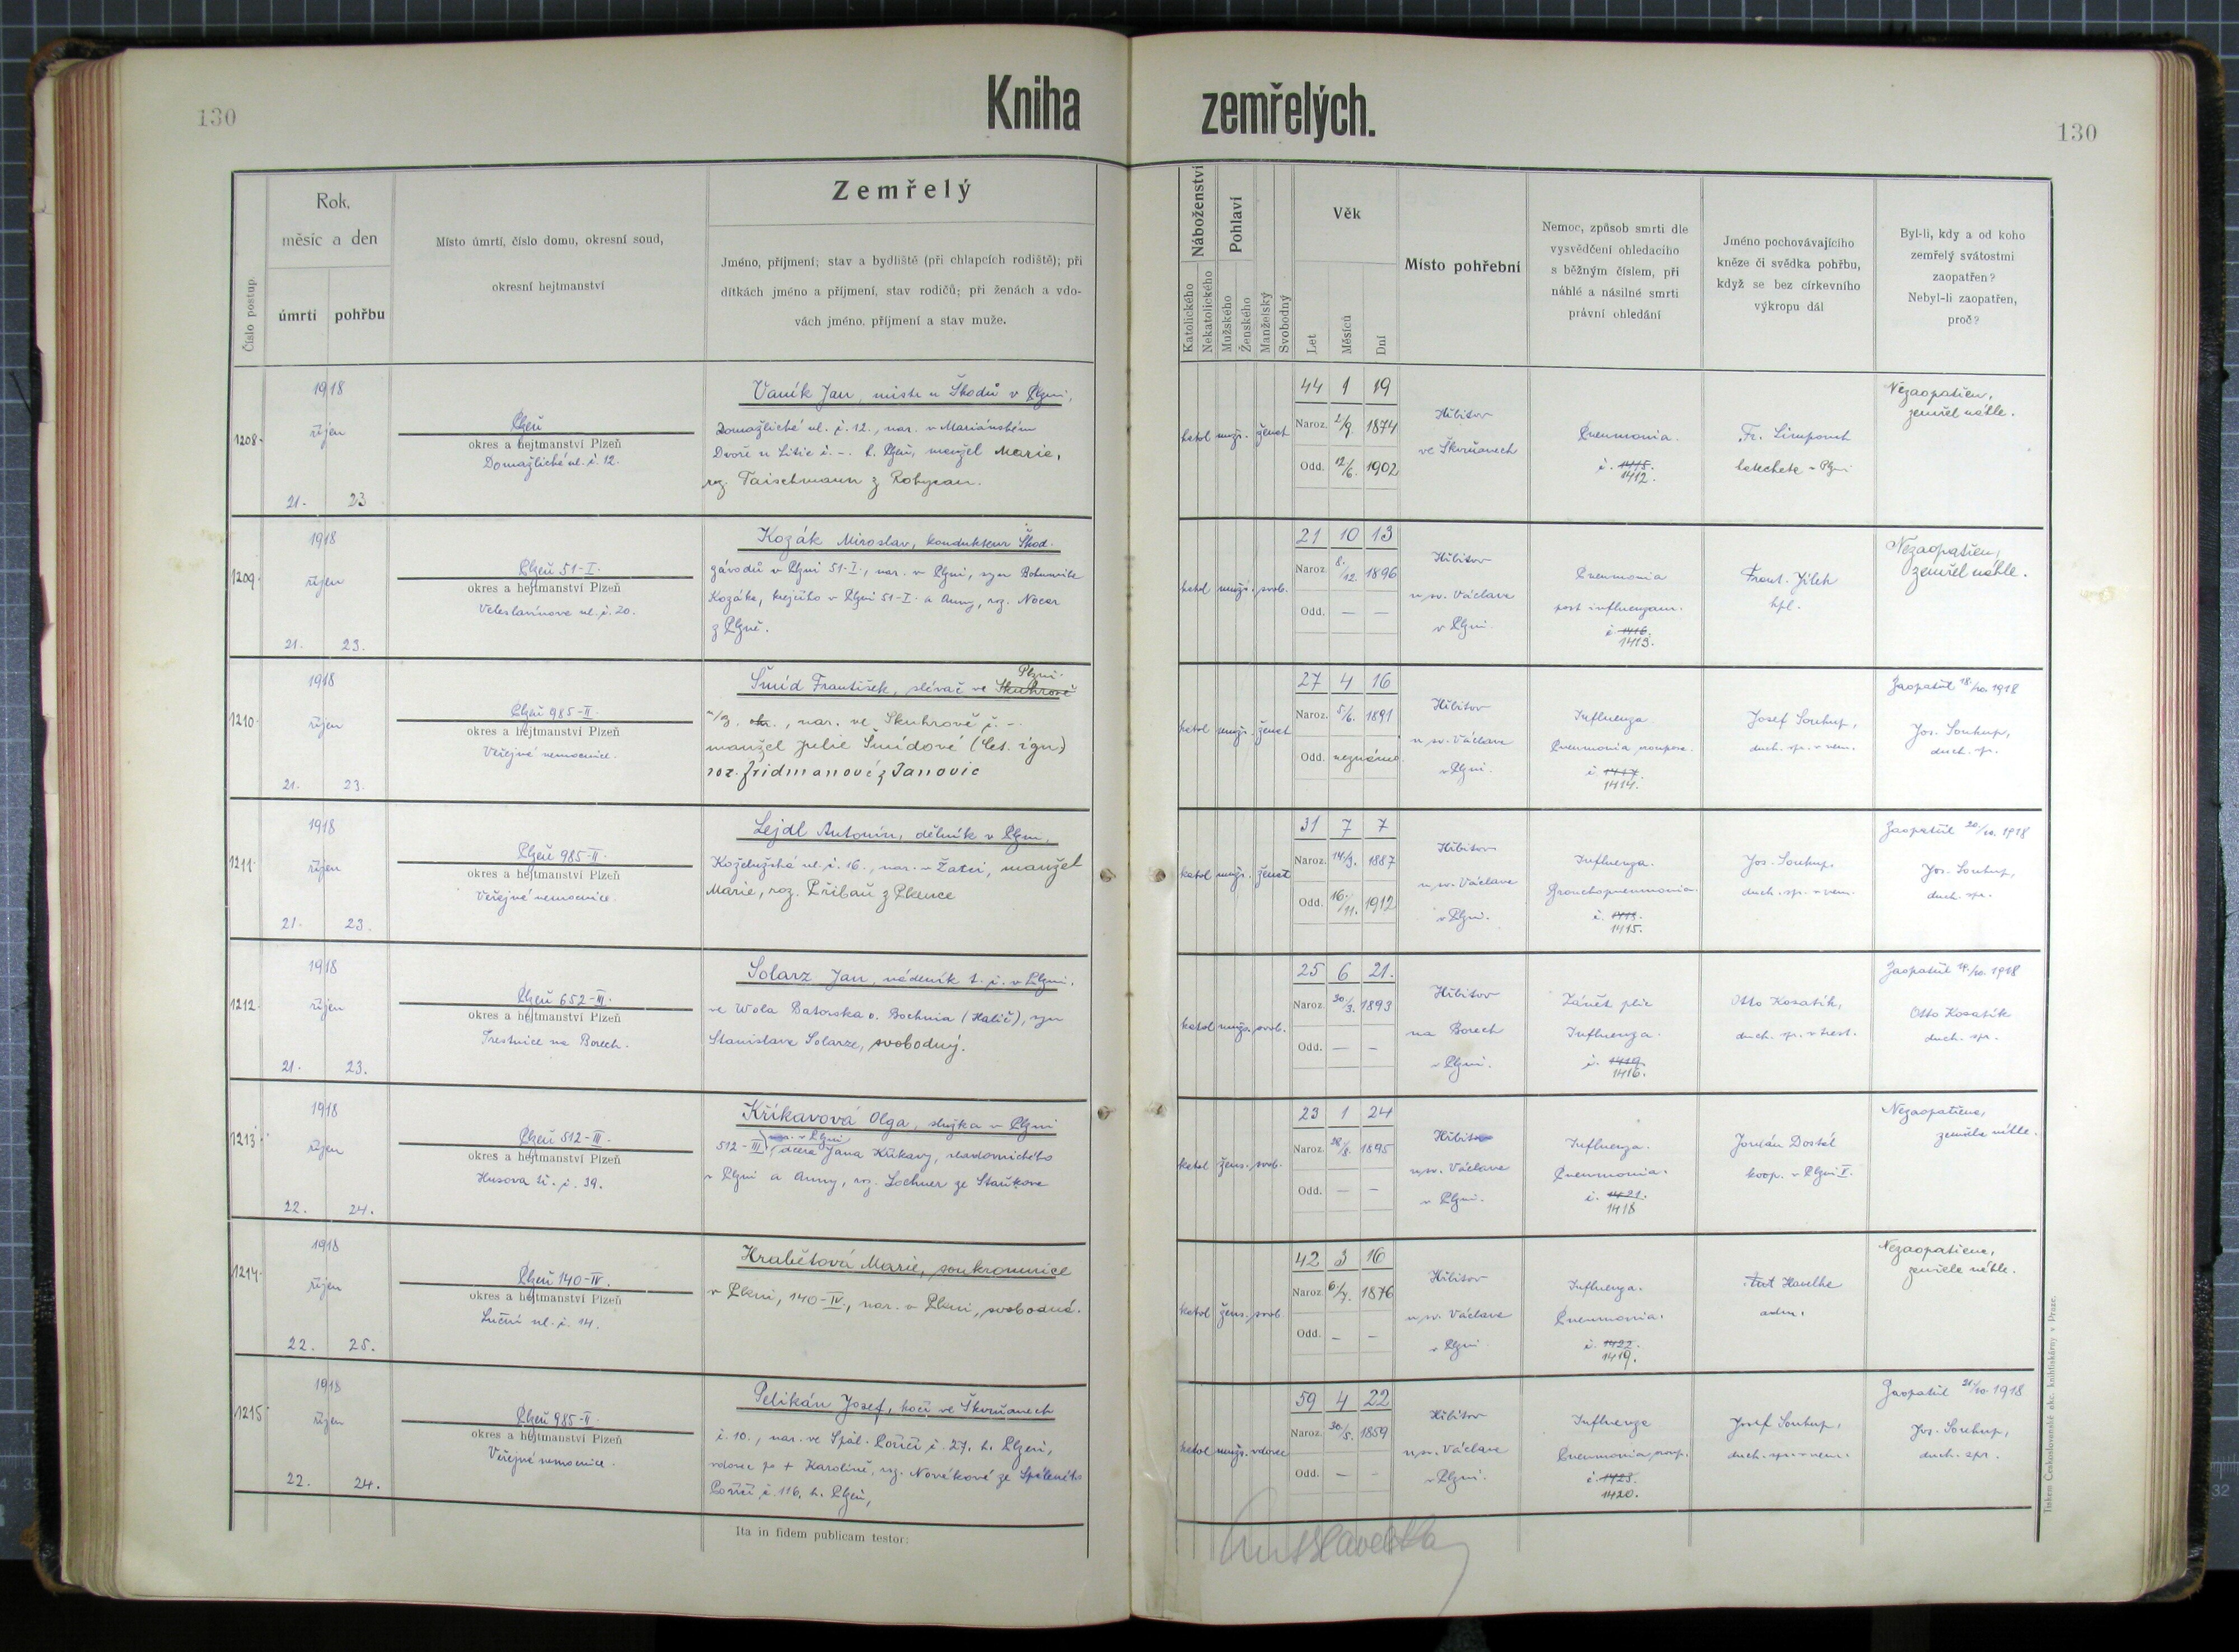 130
Kniha
zemřelých.
130
Číslo postup.
Rok,
měsíc a den
úmrtí
pohřbu
Místo úmrtí, číslo domu, okresní soud,
okresní hejtmanství
Zemřelý
Jméno, příjmení; stav a bydliště (při chlapcích rodiště); při
dítkách jméno a příjmení, stav rodičů; při ženách a vdo-
vách jméno, příjmení a stav muže.
Náboženství
Katolického
Nekatolického
Pohlaví
Mužského
Ženského
Manželský
Svobodný
Věk
Let
Měsíců
Dní
Místo pohřební
Nemoc, způsob smrti dle
vysvědčení ohledacího
s běžným číslem, při
náhlé a násilné smrti
právní ohledání
Jméno pochovávajícího
kněze či svědka pohřbu,
když se bez církevního
výkropu dál
Byl-li, kdy a od koho
zemřelý svátostmi
zaopatřen?
Nebyl-li zaopatřen,
proč?
1208.
1918
říjen
21. 23
Plzeň
okres a hejtmanství Plzeň
Domažlická ul. č. 12.
Vaník Jan, mistr u Škodů v Plzni,
Domažlická ul. č. 12., nar. v Mariánském
Dvoře u Litic č. -. h. Plzeň, manžel Marie,
roz. Taischmann z Rokycan.
katol mužs. ženat
44 1 19
Naroz. 2/9. 1874
Odd. 12/6. 1902
Hřbitov
ve Škvrňanech
Pneumonia.
č. 1415.
1412.
Fr.
katecheta v Plzni
Nezaopatřen,
zemřel náhle.
1209.
1918
říjen
21. 23.
Plzeň 51-I.
okres a hejtmanství Plzeň
Veleslavínova ul. č. 20.
Kozák Miroslav, kondukteur Škod.
závodů v Plzni 51-I., nar. v Plzni, syn Bohumila
Kozáka, krejčího v Plzni 51-I. a Anny, roz. Nocar
z Plzně.
katol mužs. svob.
21 10 13
Naroz. 8./12. 1896
Odd. — —
Hřbitov
u sv. Václava
v Plzni.
Pneumonia
post influenzam.
č. 1416.
1413.
Frant. Jílek
kpl.
Nezaopatřen,
zemřel náhle.
1210.
1918
říjen
21. 23.
Plzeň 985-II.
okres a hejtmanství Plzeň
Veřejná nemocnice.
Plzni.
Šmíd František, slévač ve Skuhrově
nar. ve Skuhrově č. -.
manžel Julie Šmídové (čet. ign)
roz. Fridmanové z Janovic
katol mužs. ženat
27 4 16
Naroz. 5/6. 1891
Odd. neznámo.
Hřbitov
u sv. Václava
v Plzni.
Influenza
Pneumonia
č. 1417.
1414.
Josef Soukup,
duch. spr. v nem.
Zaopatřil 18./10. 1918
Jos. Soukup,
duch. sp.
1211.
1918
říjen
21. 23.
Plzeň 985-II.
okres a hejtmanství Plzeň
Veřejná nemocnice.
Lejdl Antonín, dělník v Plzni.
Koželužská ul. č. 16., nar. v Žatci, manžel
Marie, roz. Přibaň z Plence
katol mužs. ženat
31 7 7
Naroz. 14/3. 1887
Odd. 16./11. 1912
Hřbitov
u sv. Václava
v Plzni.
Influenza.
Bronchopneumonia.
č. 1418.
1415.
Jos. Soukup,
duch. spr. v nem.
Zaopatřil 20./10. 1918
Jos. Soukup,
duch. spr.
1212.
1918
říjen
21. 23.
Plzeň 652-III.
okres a hejtmanství Plzeň
Trestnice na Borech.
Solarz Jan, nádeník t. č. v Plzni.
ve Wola Batorska o. Bochnia (Halič), syn
Stanislava Solarze, svobodný.
katol mužs. svob.
25 6 21.
Naroz. 30/3. 1893
Odd. — —
Hřbitov
na Borech
v Plzni.
Zánět plic
Influenza.
č. 1419.
1416.
Otto Kosatík,
duch. sp. v trest.
Zaopatřil 19./10. 1918
Otto Kosatík
duch. spr.
1213.
1918
říjen
22. 24.
Plzeň 512-III.
okres a hejtmanství Plzeň
Husova tř. č. 39.
Křikavová Olga, služka v Plzni
nar. v Plzni
512-III, dcera Jana Křikavy, sladovnického
v Plzni a Anny, roz. Lochner ze Staňkova
katol žens. svob.
23 1 24
Naroz. 28/8. 1895
Odd. — —
Hřbitov
u sv. Václava
v Plzni.
Influenza.
Pneumonia.
č. 1421.
1418
Jordán Dostál
koop. v Plzni V.
Nezaopatřena,
zemřela náhle.
1214.
1918
říjen
22. 25.
Plzeň 140-IV.
okres a hejtmanství Plzeň
Luční ul. č. 14.
Hrabětová Marie, soukromnice
v Plzni, 140-IV., nar. v Plzni, svobodná.
katol žens. svob.
42 3 16
Naroz. 6/7. 1876
Odd. — —
Hřbitov
u sv. Václava
v Plzni
Influenza.
Pneumonia.
č. 1422.
1419.
Ant Havelka
adm.
Nezaopatřena,
zemřela náhle.
1215
1918
říjen
22. 24.
Plzeň 985-II.
okres a hejtmanství Plzeň
Veřejná nemocnice.
Pelikán Josef, kočí ve Škvrňanech
č. 10., nar. ve Spál. Poříčí č. 27. h. Plzeň,
vdovec po + Karolíně, roz. Novákové ze Spáleného
Poříčí č. 116. h. Plzeň,
katol mužs. vdovec
59 4 22
Naroz. 30/5. 1859
Odd. — —
Hřbitov
u sv. Václava
v Plzni.
Influenza
Pneumonia
č. 1423.
1420.
Josef Soukup,
duch. spr. v nem.
Zaopatřil 21/10. 1918
Jos. Soukup,
duch. spr.
Ita in fidem publicam testor:
Ant Havelka
Tiskem Československé akc. knihtiskárny v Praze.